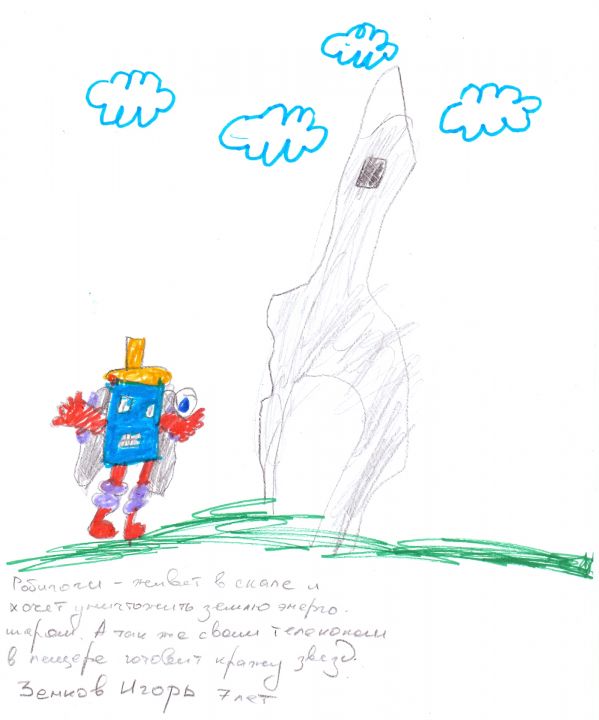 Робигоги - живет в скале и
хочет уничтожить землю энерго-
шаром. А так же своим телекопом
в пещере готовит кражу звезд.
Зенков Игорь 7 лет